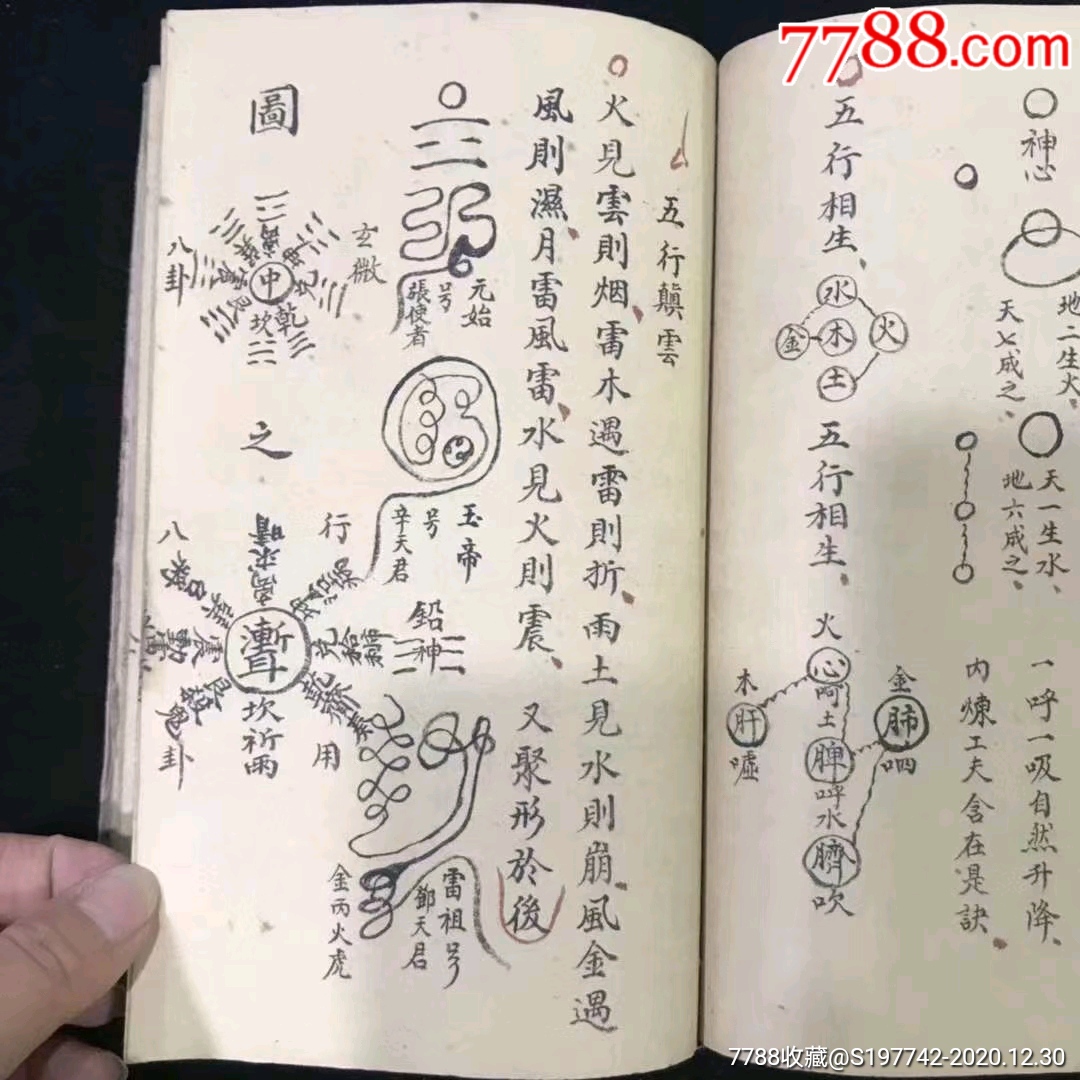 7788.com
神心
地二生火、
天七成之、
天一生水、
地六成之、
一呼一吸自然升降、
內煉工夫含在是訣、
五行相生、
水
金
木
火
土
五行相生、
火
心
呵
土
脾
呼
水
臍
吹
木
肝
噓
金
肺
呬
五行顛雲
火見雲則烟、雷木遇雷則折、雨土見水則崩、風金遇
風則濕、月雷風雷、水見火則震、又聚形於後
元始
号
張使者
玉帝
号
辛天君
鉛神
雷祖号
鄧天君
金丙火虎
玄微
圖
八卦
中
離
坤
兌
乾
坎
艮
震
巽
之
行
用
八
卦
坎祈雨
離求晴
兌
乾
艮
震動
巽
7788收藏@S197742-2020.12.30